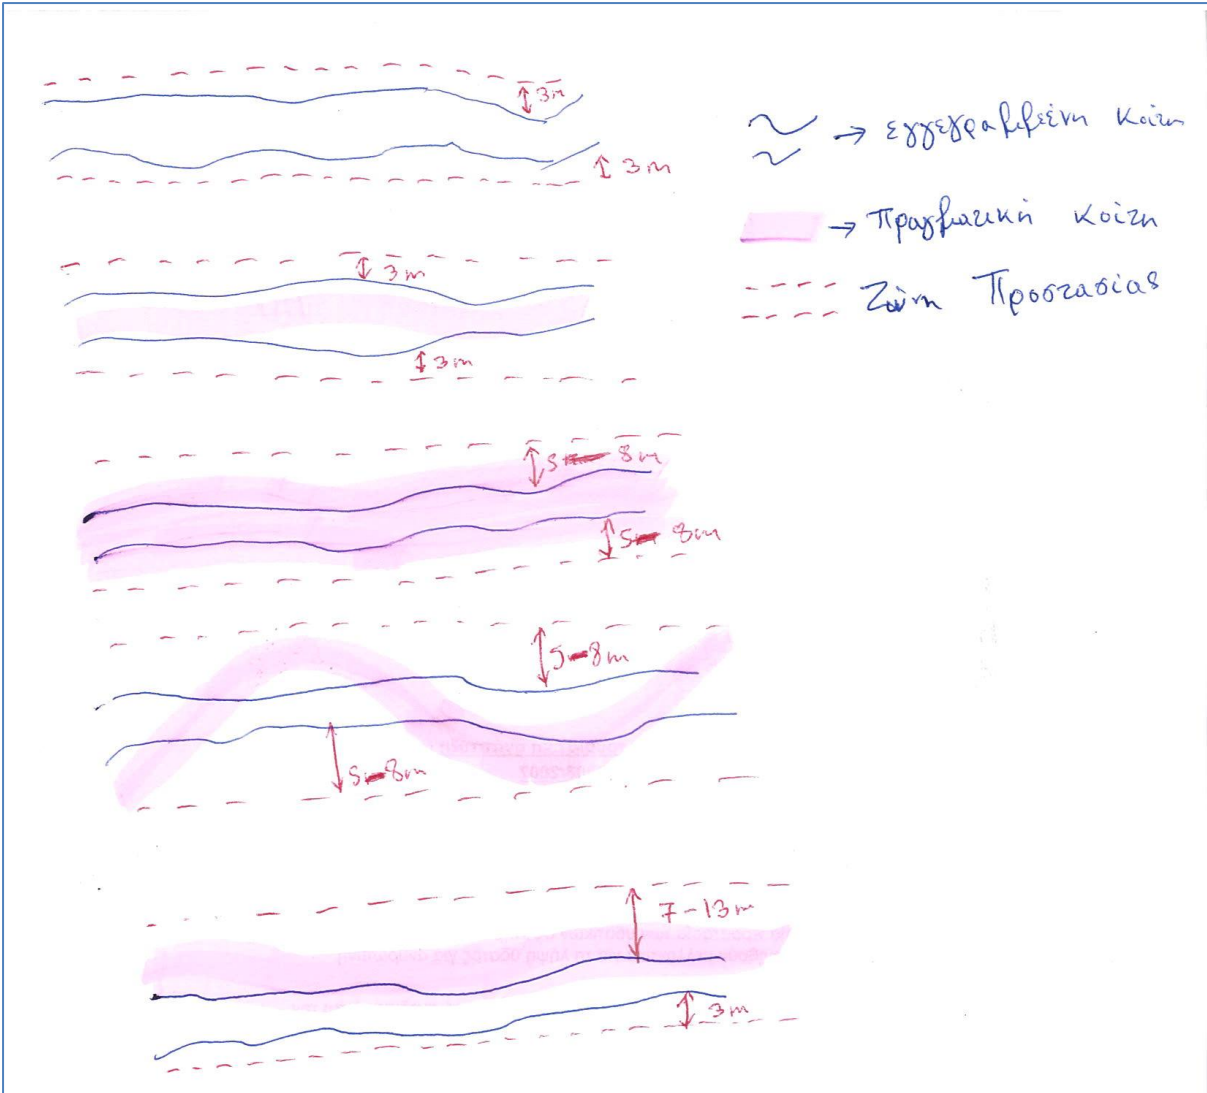 3m
3m
→ εγγεγραμμένη κοίτη
→ Πραγματική κοίτη
Ζώνη Προστασίας
3m
3m
5-8m
5-8m
5-8m
5-8m
7-13m
3m